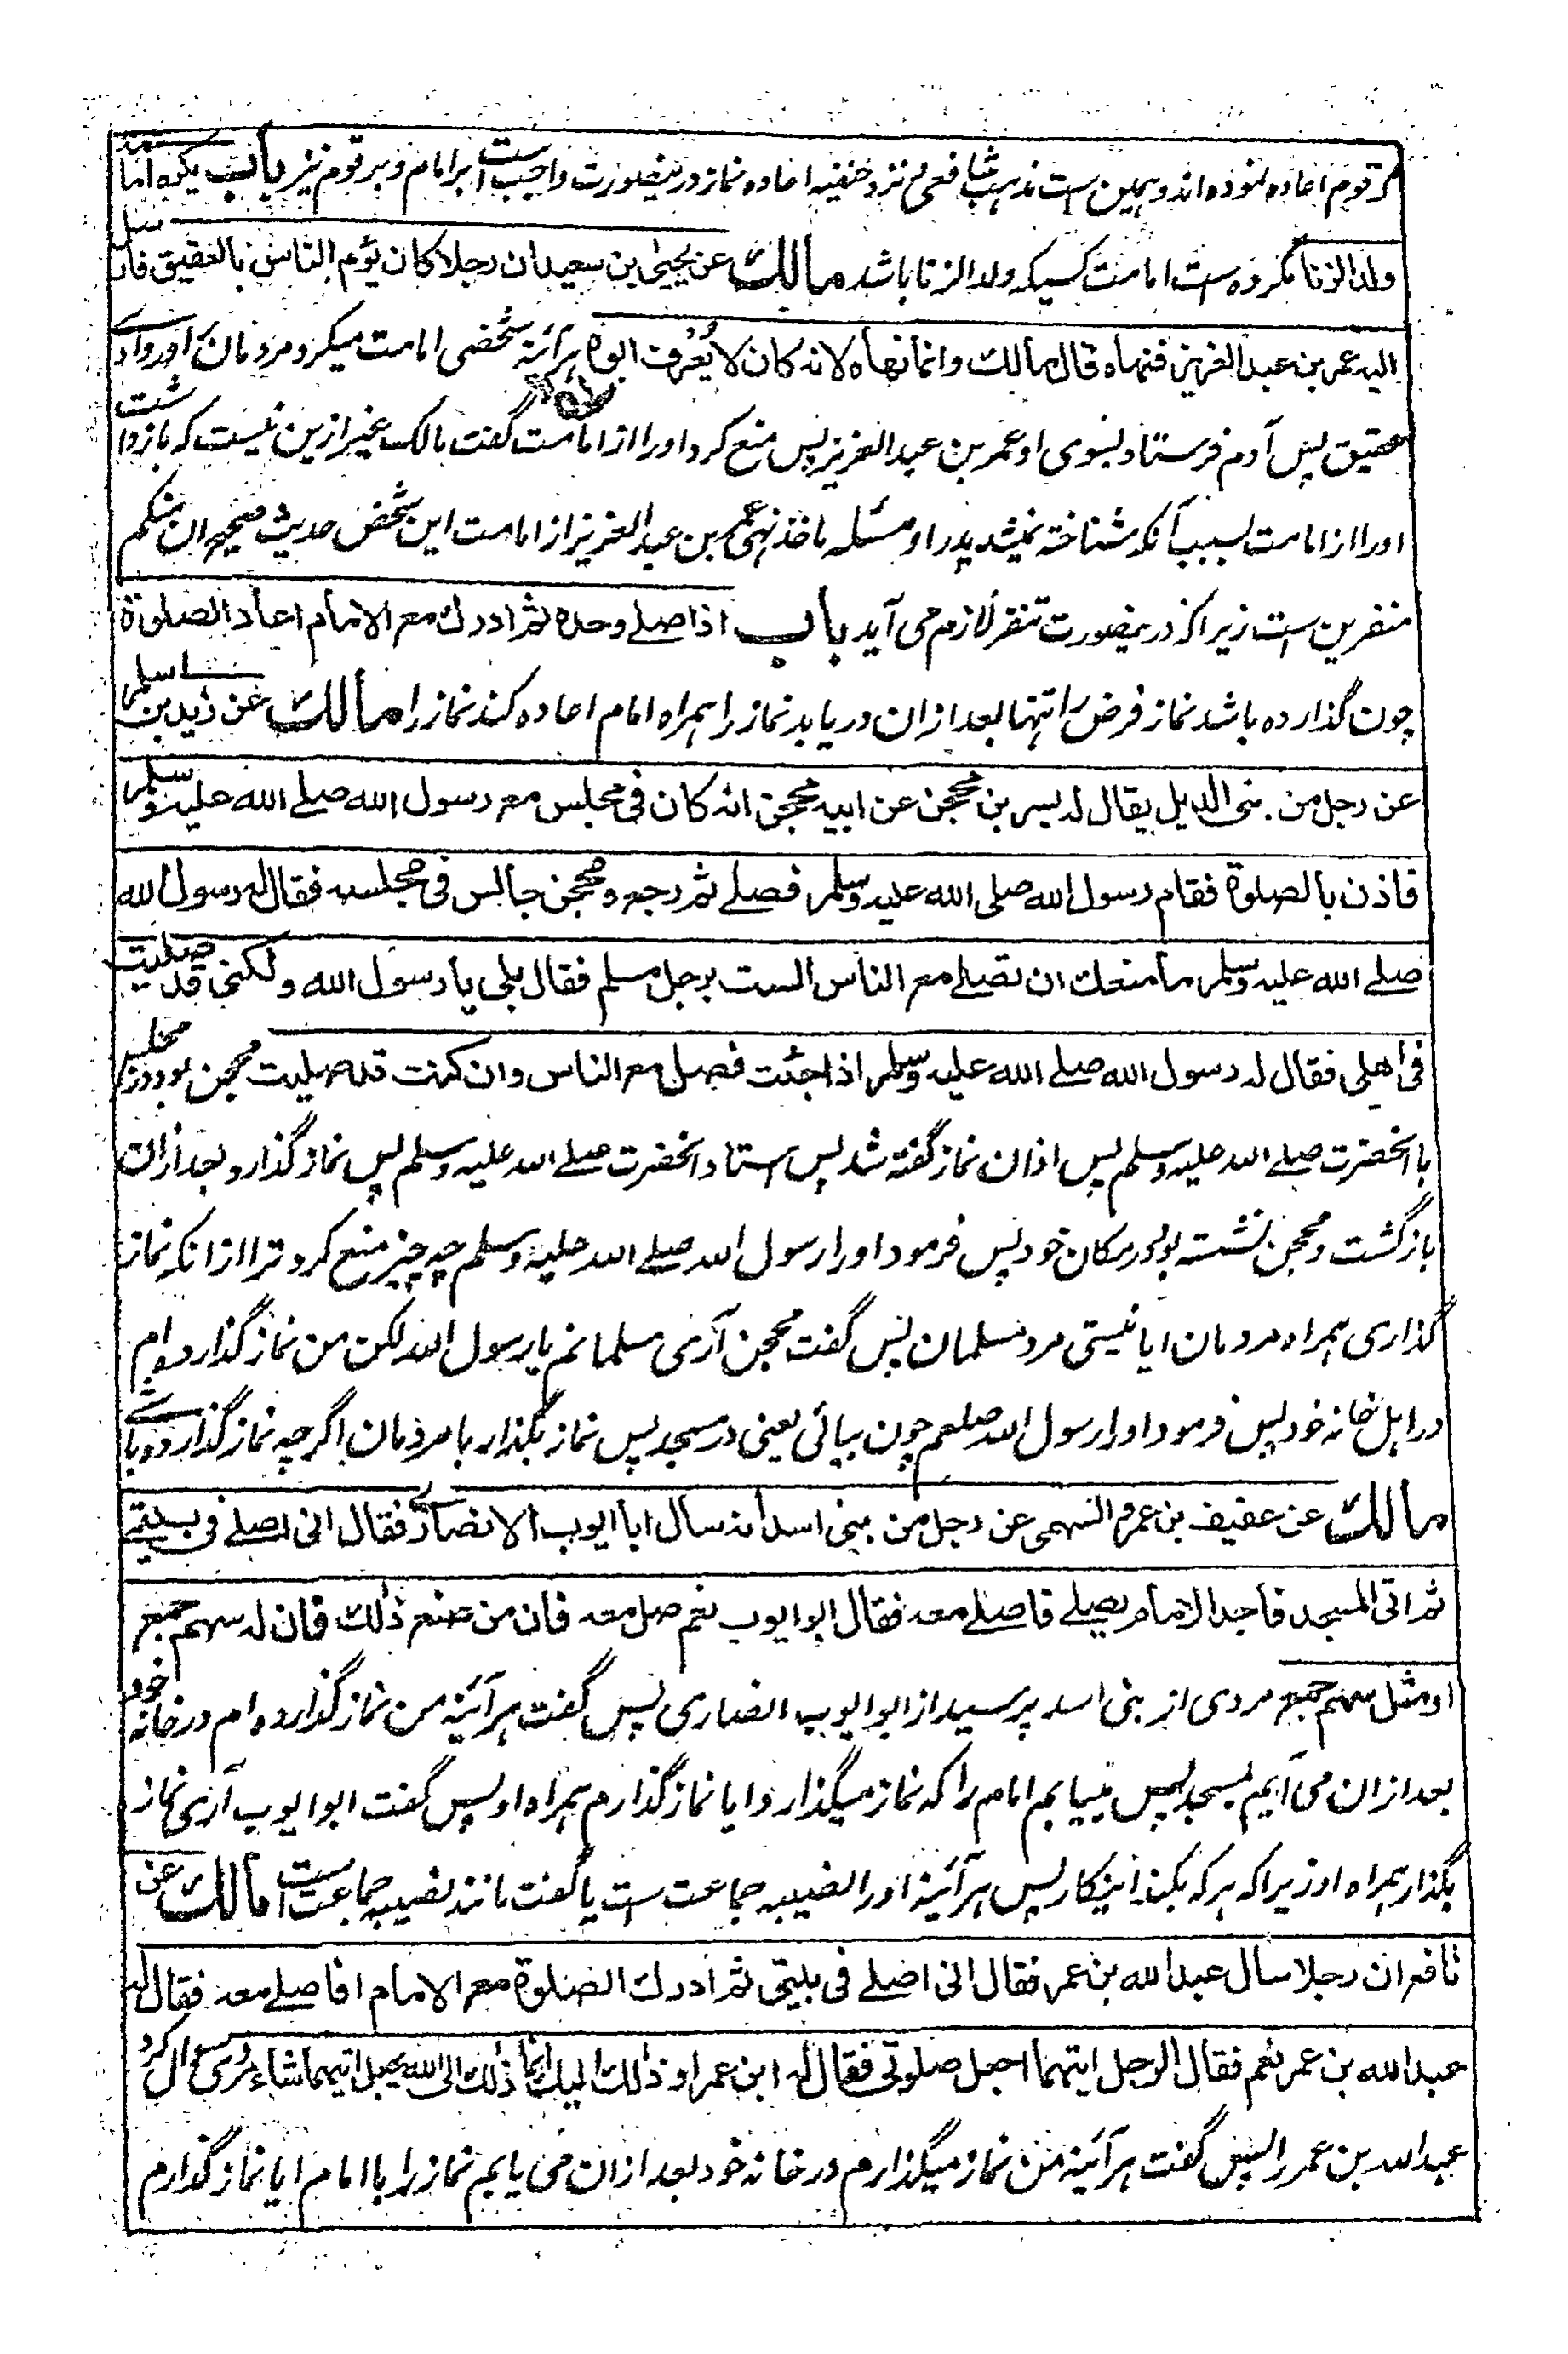 مر قوم اعاده ننموده اند و همین ست مذهب شافعی نزد حنفیه اعاده نماز درینصورت واجب ست بر امام و بر قوم نیز باب یکره امامة
ولد الزنا مکروه ست امامت کسیکه ولد الزنا باشد مالك عن یحیی بن سعید ان رجلا کان یؤم الناس بالعقیق فارسل
الیه عمر بن عبد العزیز فنهاه قال مالك وانما نهاه لانه کان لا یُعْرف ابوه هر آئنه شخصی امامت میکرد مردمان را در وادی
عقیق پس آدم فرستاد بسوی او عمر بن عبد العزیز پس منع کرد اورا از امامت گفت مالک غیر ازین نیست که بازداشت
اورا از امامت بسبب آنکه شناخته نمیشد پدر او مسئله ماخذ نهی عمر بن عبد العزیز از امامت این شخص حدیث صحیح ان منکم
منفرین ست زیرا که درینصورت تنفر لازم می آید باب اذا صلے وحده ثم ادرك مع الامام اعاد الصلوة
چون گذارده باشد نماز فرض را تنها بعد ازان دریابد نماز را همراه امام اعاده کند نماز را مالك عن زید بن اسلم
عن رجل من بنی الدیل یقال له بسر بن محجن عن ابیه محجن انه کان فی مجلس مع رسول الله صلے الله علیه وسلم
فاذن بالصلوة فقام رسول الله صلی الله علیه وسلم فصلے ثم رجع ومحجن جالس فی مجلسه فقال له رسول الله
صلے الله علیه وسلم ما منعك ان تصلے مع الناس الست برجل مسلم فقال بلی یا رسول الله ولکنی قد صلیت
فی اهلی فقال له رسول الله صلے الله علیه وسلم اذا جئت فصل مع الناس وان کنت قد صلیت محجن بود در مجلس
با آنحضرت صلے الله علیه وسلم پس اذان نماز گفته شد پس استاد آنحضرت صلے الله علیه وسلم پس نماز گذارد بعد ازان
بازگشت و محجن نشسته بود در مکان خود پس فرمود اورا رسول الله صلے الله علیه وسلم چه چیز منع کرد ترا از انکه نماز
گذاری همراه مردمان ایا نیستی مرد مسلمان پس گفت محجن آری مسلمانم یا رسول الله لکن من نماز گذارده ام
در اهل خانه خود پس فرمود اورا رسول الله صلعم چون بیائی یعنی در مسجد پس نماز بگذار با مردمان اگرچه نماز گذارده باشے
مالك عن عفیف بن عمرو السهمی عن رجل من بنی اسد انه سال ابا ایوب الانصاری فقال انی اصلے فی بیتے
ثم اتی المسجد فاجد الامام یصلے فاصلے معه فقال ابو ایوب نعم صل معه فان من صنع ذلك فان له سهم جمع
او مثل سهم جمع مردی از بنی اسد پرسید از ابو ایوب انصاری پس گفت هر آئینه من نماز گذارده ام در خانه خود
بعد ازان می آیم بمسجد پس مییابم امام را که نماز میگذارد ایا نماز گذارم همراه او پس گفت ابو ایوب آری نماز
بگذار همراه او زیرا که هر که بکند اینکار پس هر آئینه اورا نصیبه جماعت ست یا گفت مانند نصیبه جماعت ست مالك عن
نافع ان رجلا سال عبد الله بن عمر فقال انی اصلے فی بیتی ثم ادرك الصلوة مع الامام افاصلے معه فقال له
عبد الله بن عمر نعم فقال الرجل ایتهما اجعل صلوتی فقال له ابن عمر او ذلك الیك انما ذلك الی الله یجعل ایتهما شاء مردی سوال کرد
عبد الله بن عمر را پس گفت هر آئینه من نماز میگذارم در خانه خود بعد ازان می یابم نماز را با امام ایا نماز گذارم